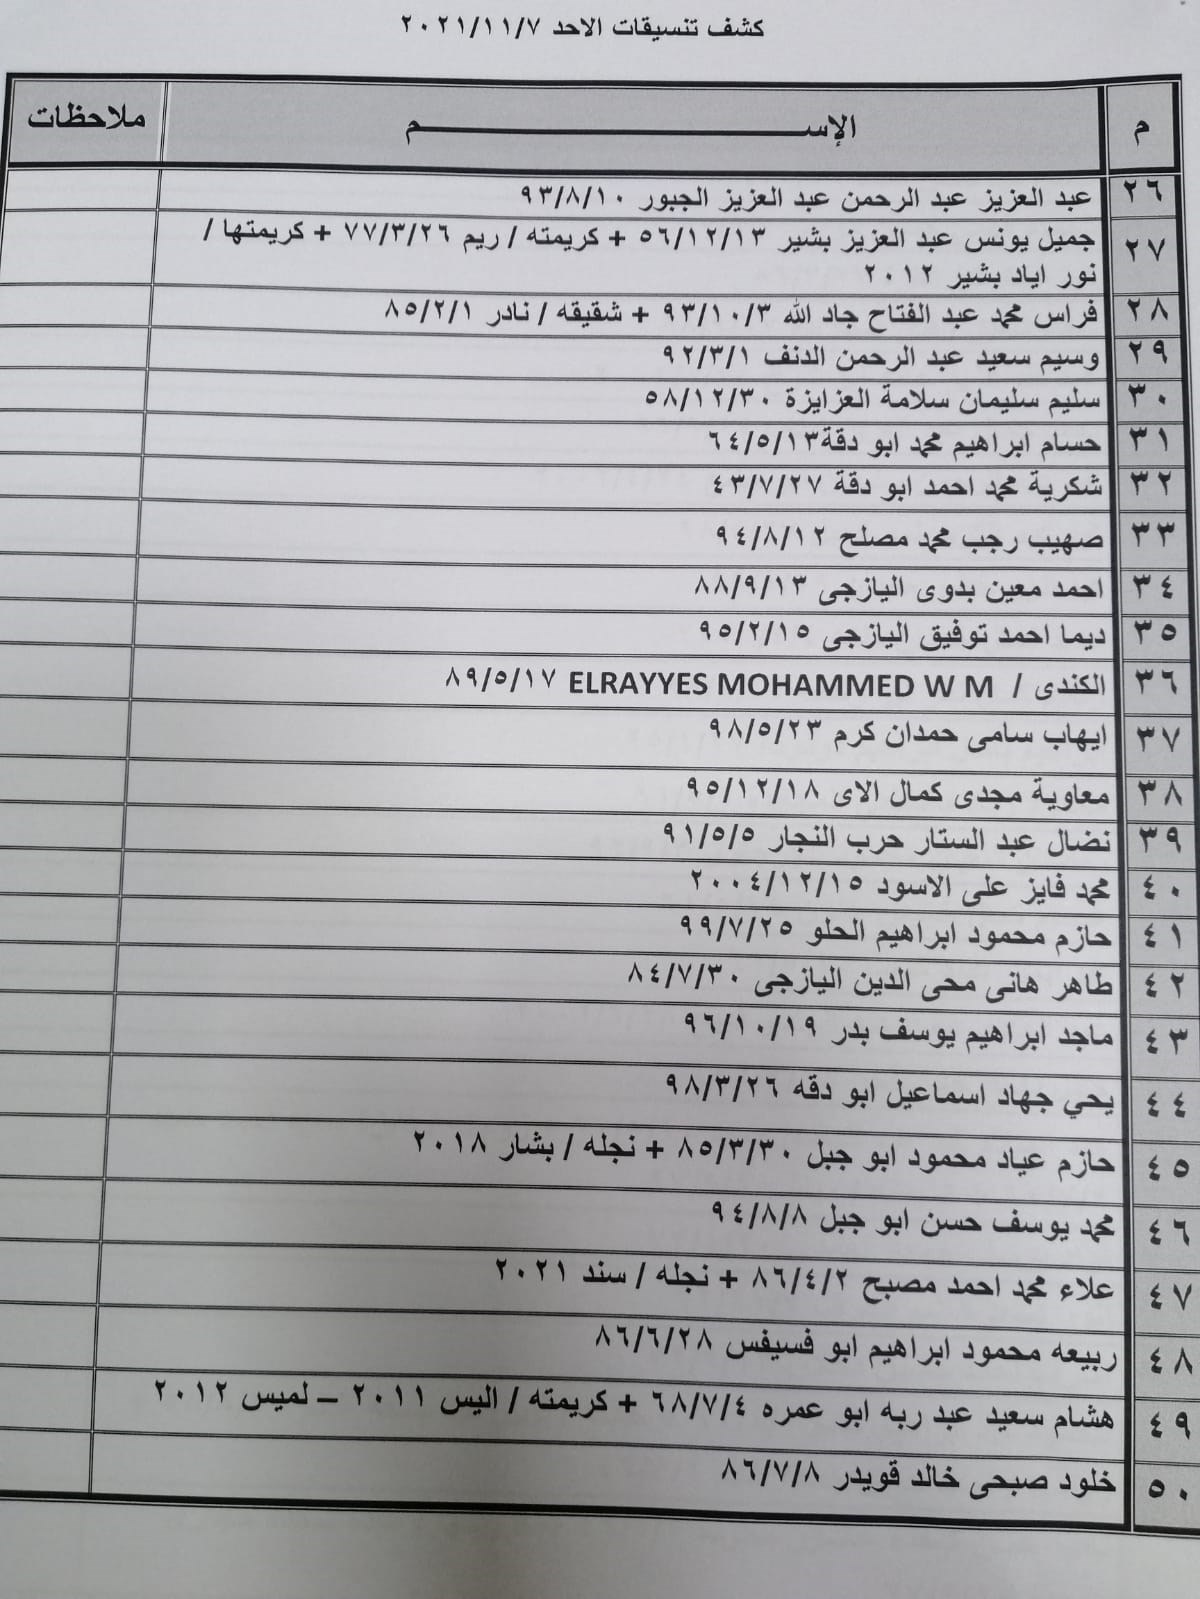 كشف تنسيقات الاحد ٢٠٢١/١١/٧
م الإســـم ملاحظات
٢٦ عبد العزيز عبد الرحمن عبد العزيز الجبور ٩٣/٨/١٠
٢٧ جميل يونس عبد العزيز بشير ٥٦/١٢/١٣ + كريمته / ريم ٧٧/٣/٢٦ + كريمتها /
نور اياد بشير ٢٠١٢
٢٨ فراس محمد عبد الفتاح جاد الله ٩٣/١٠/٣ + شقيقه / نادر ٨٥/٢/١
٢٩ وسيم سعيد عبد الرحمن الدنف ٩٢/٣/١
٣٠ سليم سليمان سلامة العزايزة ٥٨/١٢/٣٠
٣١ حسام ابراهيم محمد ابو دقة٦٤/٥/١٣
٣٢ شكرية محمد احمد ابو دقة ٤٣/٧/٢٧
٣٣ صهيب رجب محمد مصلح ٩٤/٨/١٢
٣٤ احمد معين بدوى اليازجى ٨٨/٩/١٣
٣٥ ديما احمد توفيق اليازجى ٩٥/٢/١٥
٣٦ الكندى / ELRAYYES MOHAMMED W M ٨٩/٥/١٧
٣٧ ايهاب سامى حمدان كرم ٩٨/٥/٢٣
٣٨ معاوية مجدى كمال الاى ٩٥/١٢/١٨
٣٩ نضال عبد الستار حرب النجار ٩١/٥/٥
٤٠ محمد فايز على الاسود ٢٠٠٤/١٢/١٥
٤١ حازم محمود ابراهيم الحلو ٩٩/٧/٢٥
٤٢ طاهر هانى محى الدين اليازجى ٨٤/٧/٣٠
٤٣ ماجد ابراهيم يوسف بدر ٩٦/١٠/١٩
٤٤ يحي جهاد اسماعيل ابو دقه ٩٨/٣/٢٦
٤٥ حازم عياد محمود ابو جبل ٨٥/٣/٣٠ + نجله / بشار ٢٠١٨
٤٦ محمد يوسف حسن ابو جبل ٩٤/٨/٨
٤٧ علاء محمد احمد مصبح ٨٦/٤/٢ + نجله / سند ٢٠٢١
٤٨ ربيعه محمود ابراهيم ابو فسيفس ٨٦/٦/٢٨
٤٩ هشام سعيد عبد ربه ابو عمره ٦٨/٧/٤ + كريمته / اليس ٢٠١١ – لميس ٢٠١٢
٥٠ خلود صبحى خالد قويدر ٨٦/٧/٨